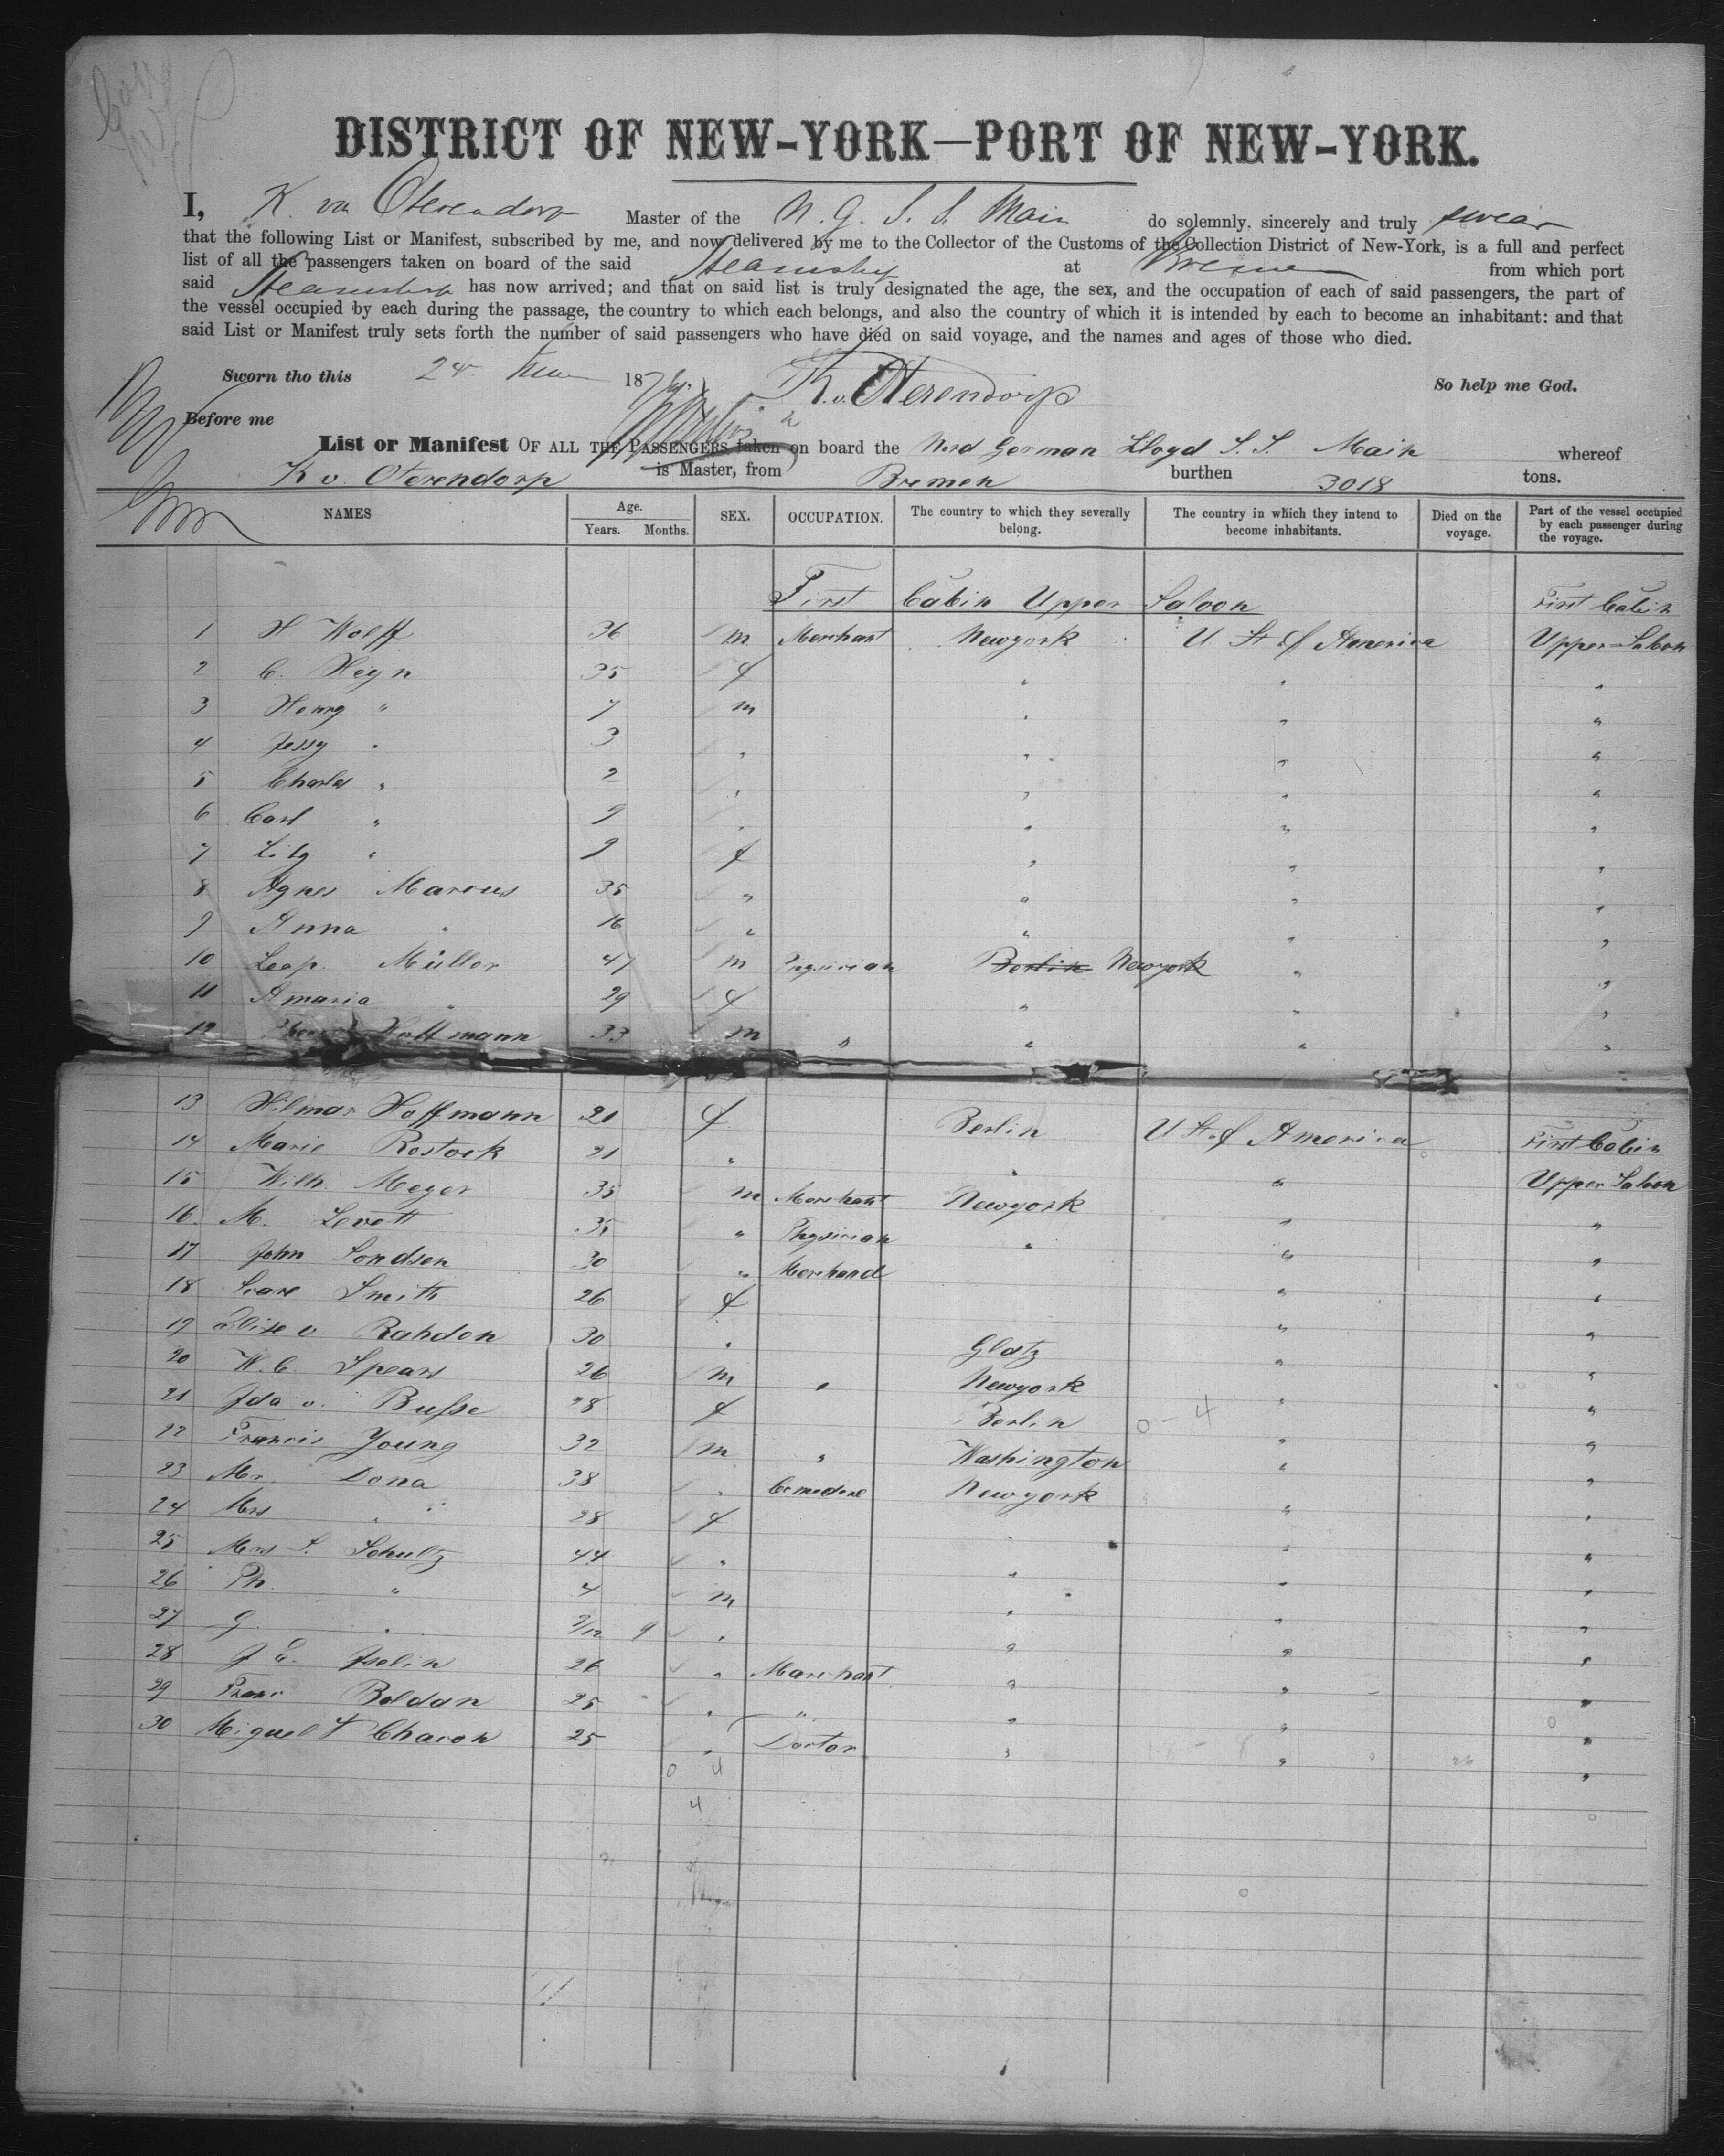 DISTRICT OF NEW-YORK—PORT OF NEW-YORK.
I, K. v. Oterendorp Master of the N. G. S. S. Main do solemnly, sincerely and truly swear
that the following List or Manifest, subscribed by me, and now delivered by me to the Collector of the Customs of the Collection District of New-York, is a full and perfect
list of all the passengers taken on board of the said Steamship at Bremen from which port
said Steamship has now arrived; and that on said list is truly designated the age, the sex, and the occupation of each of said passengers, the part of
the vessel occupied by each during the passage, the country to which each belongs, and also the country of which it is intended by each to become an inhabitant: and that
said List or Manifest truly sets forth the number of said passengers who have died on said voyage, and the names and ages of those who died.
Sworn tho this 187 K. v. Oterendorp So help me God.
Before me
List or Manifest OF ALL THE PASSENGERS taken on board the Nord German Lloyd S. S. Main whereof
K v. Oterendorp is Master, from Bremen burthen 3018 tons.
NAMES Age. Years. Months. SEX. OCCUPATION. The country to which they severally belong. The country in which they intend to become inhabitants. Died on the voyage. Part of the vessel occupied by each passenger during the voyage.
First Cabin Upper Saloon First Cabin
1 H Wolff 36 m Merchant Newyork U. St. of America Upper Saloon
2 C. Heyn 35 f " " "
3 Henry " 7 m " " "
4 Jessy " 3 " " " "
5 Charles " 2 " " " "
6 Carl " 9 " " " "
7 Lily " 9 f " " "
8 Agnes Marcus 35 " " " "
9 Anna " 16 " " " "
10 Leop. Müller 47 m Physician Berlin Newyork " "
11 Amaria " 29 f " " "
12 Hoffmann 33 m " " " "
13 Hilmar Hoffmann 21 f Berlin U. St. of America First Cabin
14 Marie Rostock 21 " " " Upper Saloon
15 Wilh. Meyer 35 m Merchant Newyork " "
16. M. Levett 35 " Physician " " "
17 John Sondsen 30 " Merchand " "
18 Smith 26 f " "
19 Elise v. Rahden 30 " Glatz " "
20 W. C. Spears 26 m " Newyork " "
21 Ida v. Busse 28 f Berlin 0 - 4 " "
22 Francis Young 32 m " Washington " "
23 Mr. Dona 38 " Newyork " "
24 Mrs " 28 f " " "
25 Mrs S. Schultz 44 " " " "
26 Ph. " 4 m " " "
27 G. " 9/12 9 " " " "
28 J. E. Iselin 26 " Marchant " " "
29 Franc Boldan 25 " " " " "
30 Miguel T Chacon 25 " Doctor " " "
0 4
4